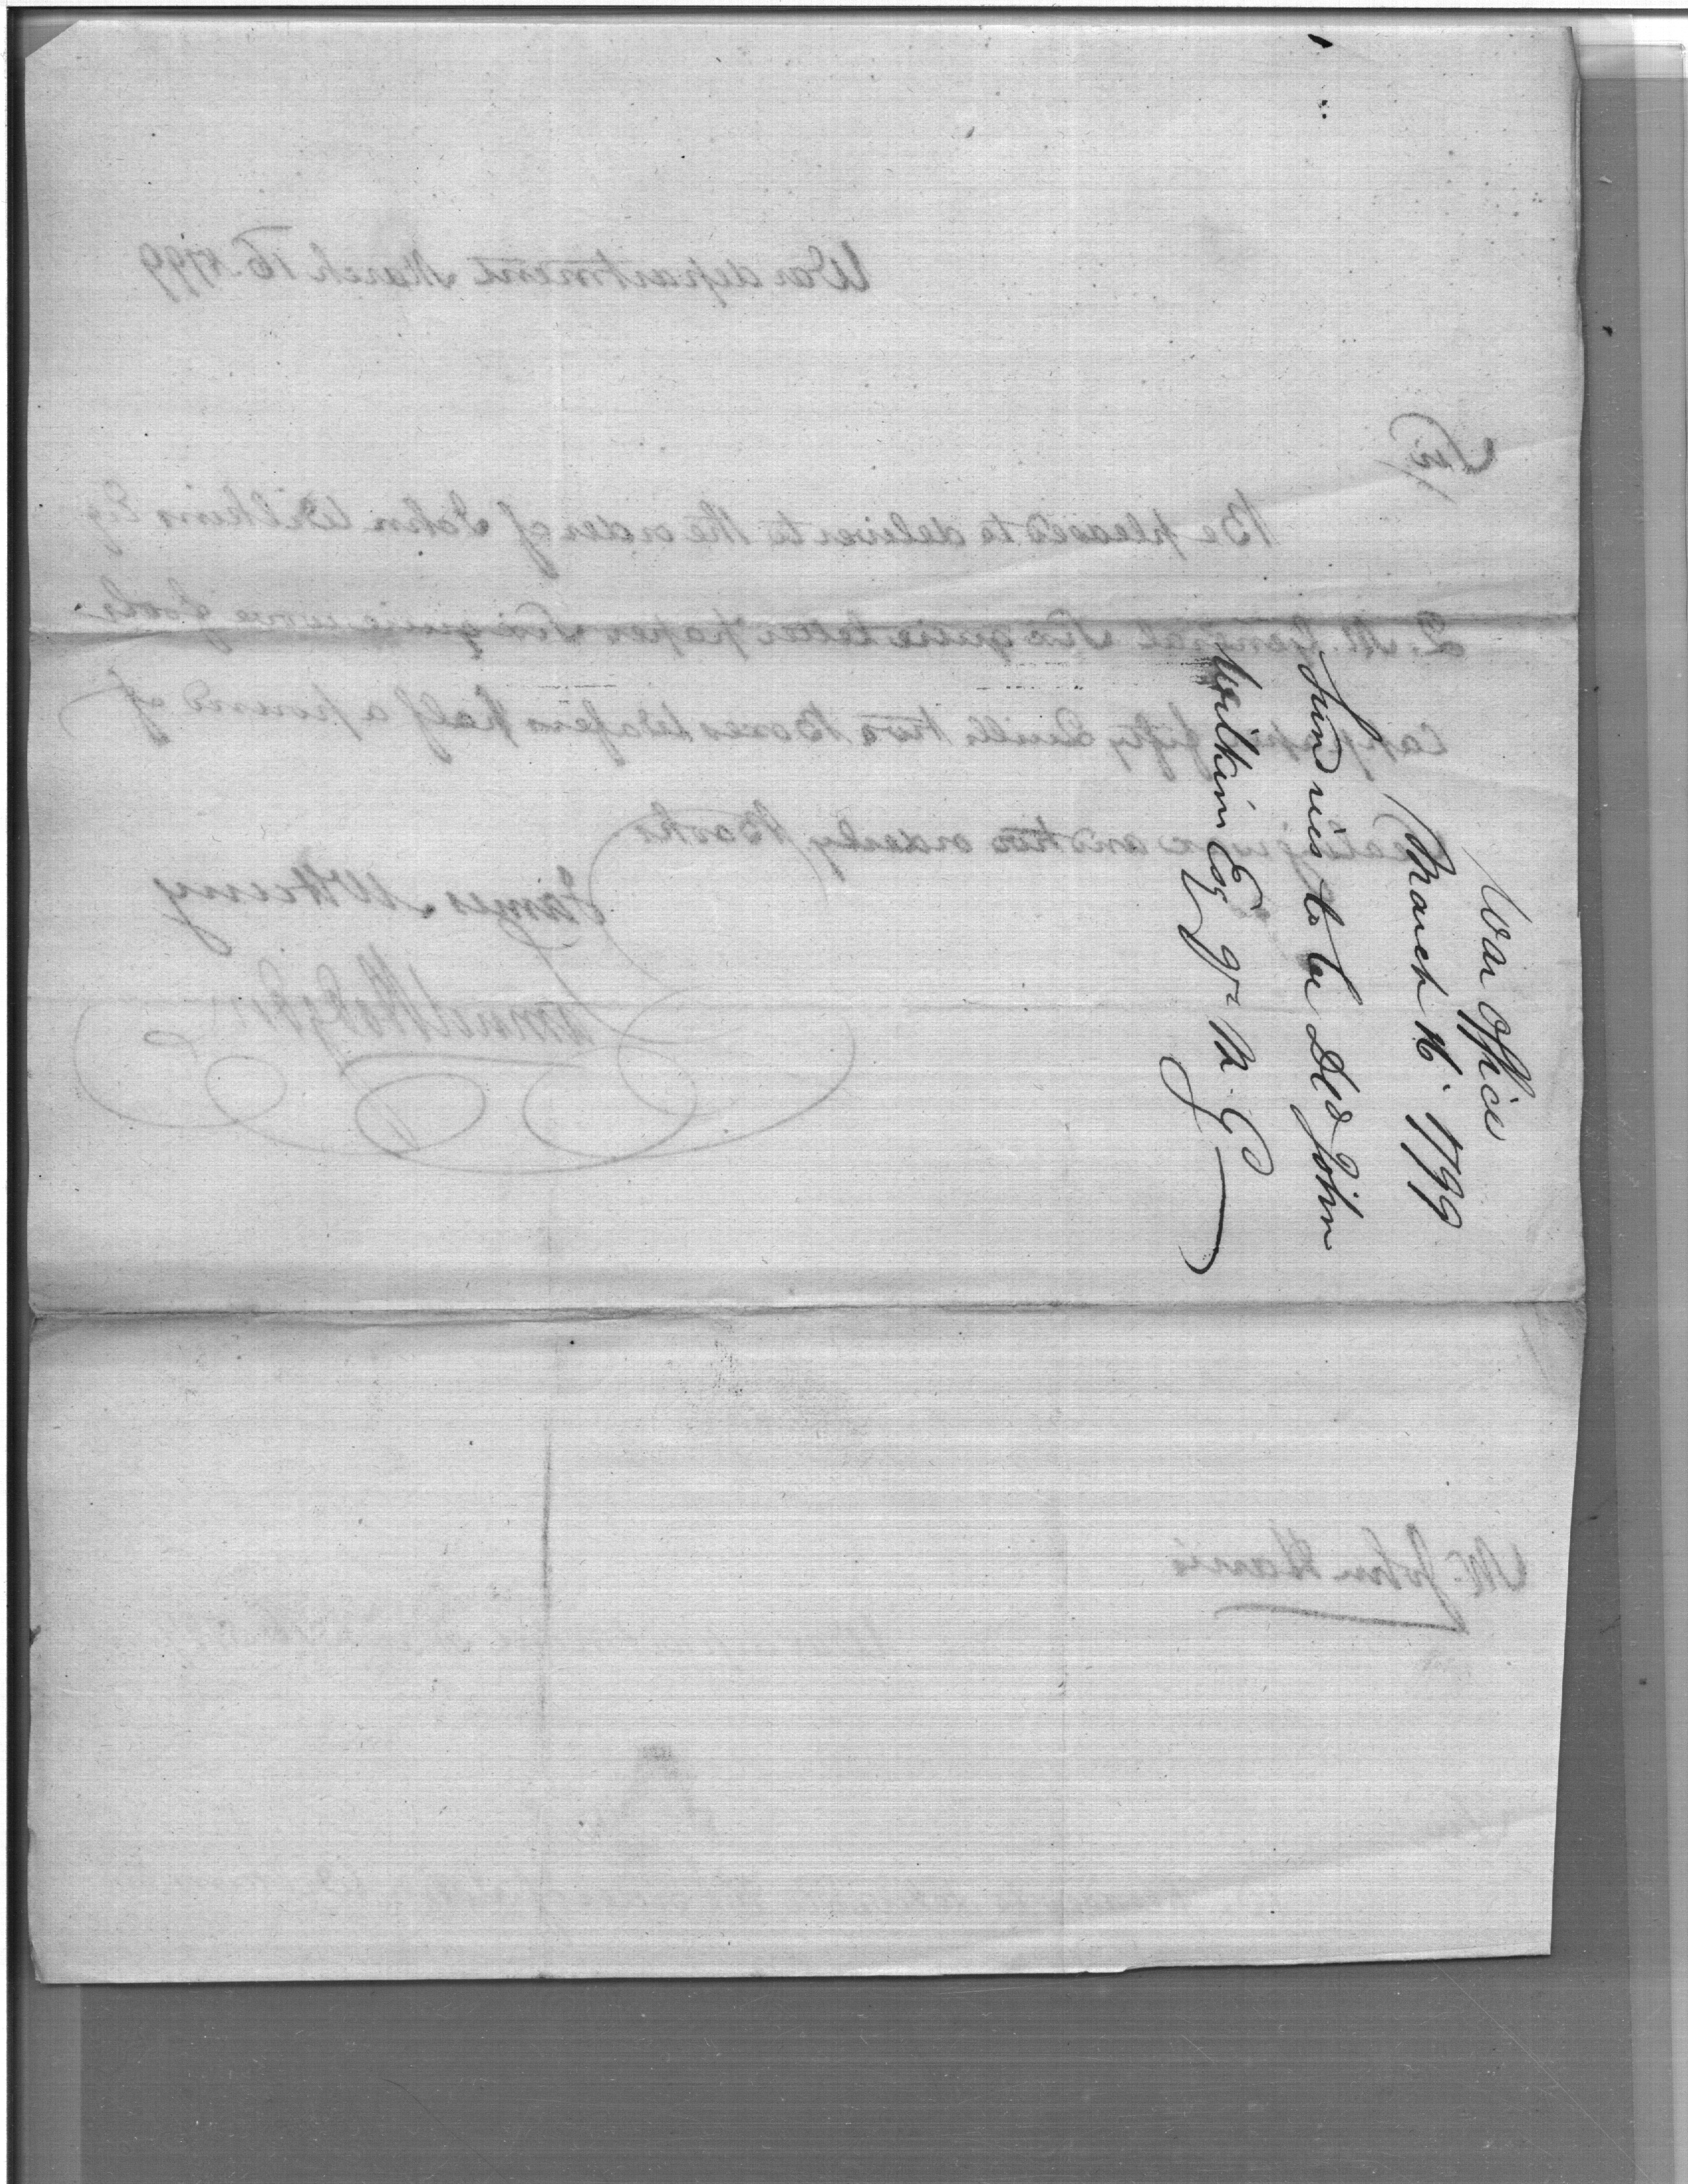 War Office
March 16. 1799
Sundries to be Dld John
Wilkins Esq qr M. G
War department March 16. 1799
Sir
Be pleased to deliver to the order of John Wilkins Esq
Q. M. General Six quire letter paper Six quire
cap paper fifty Quills two Boxes Wafers half a pound of
Sealing wax and two orderly Books
James McHenry
Samuel Hodgdon
Mr. John Harris